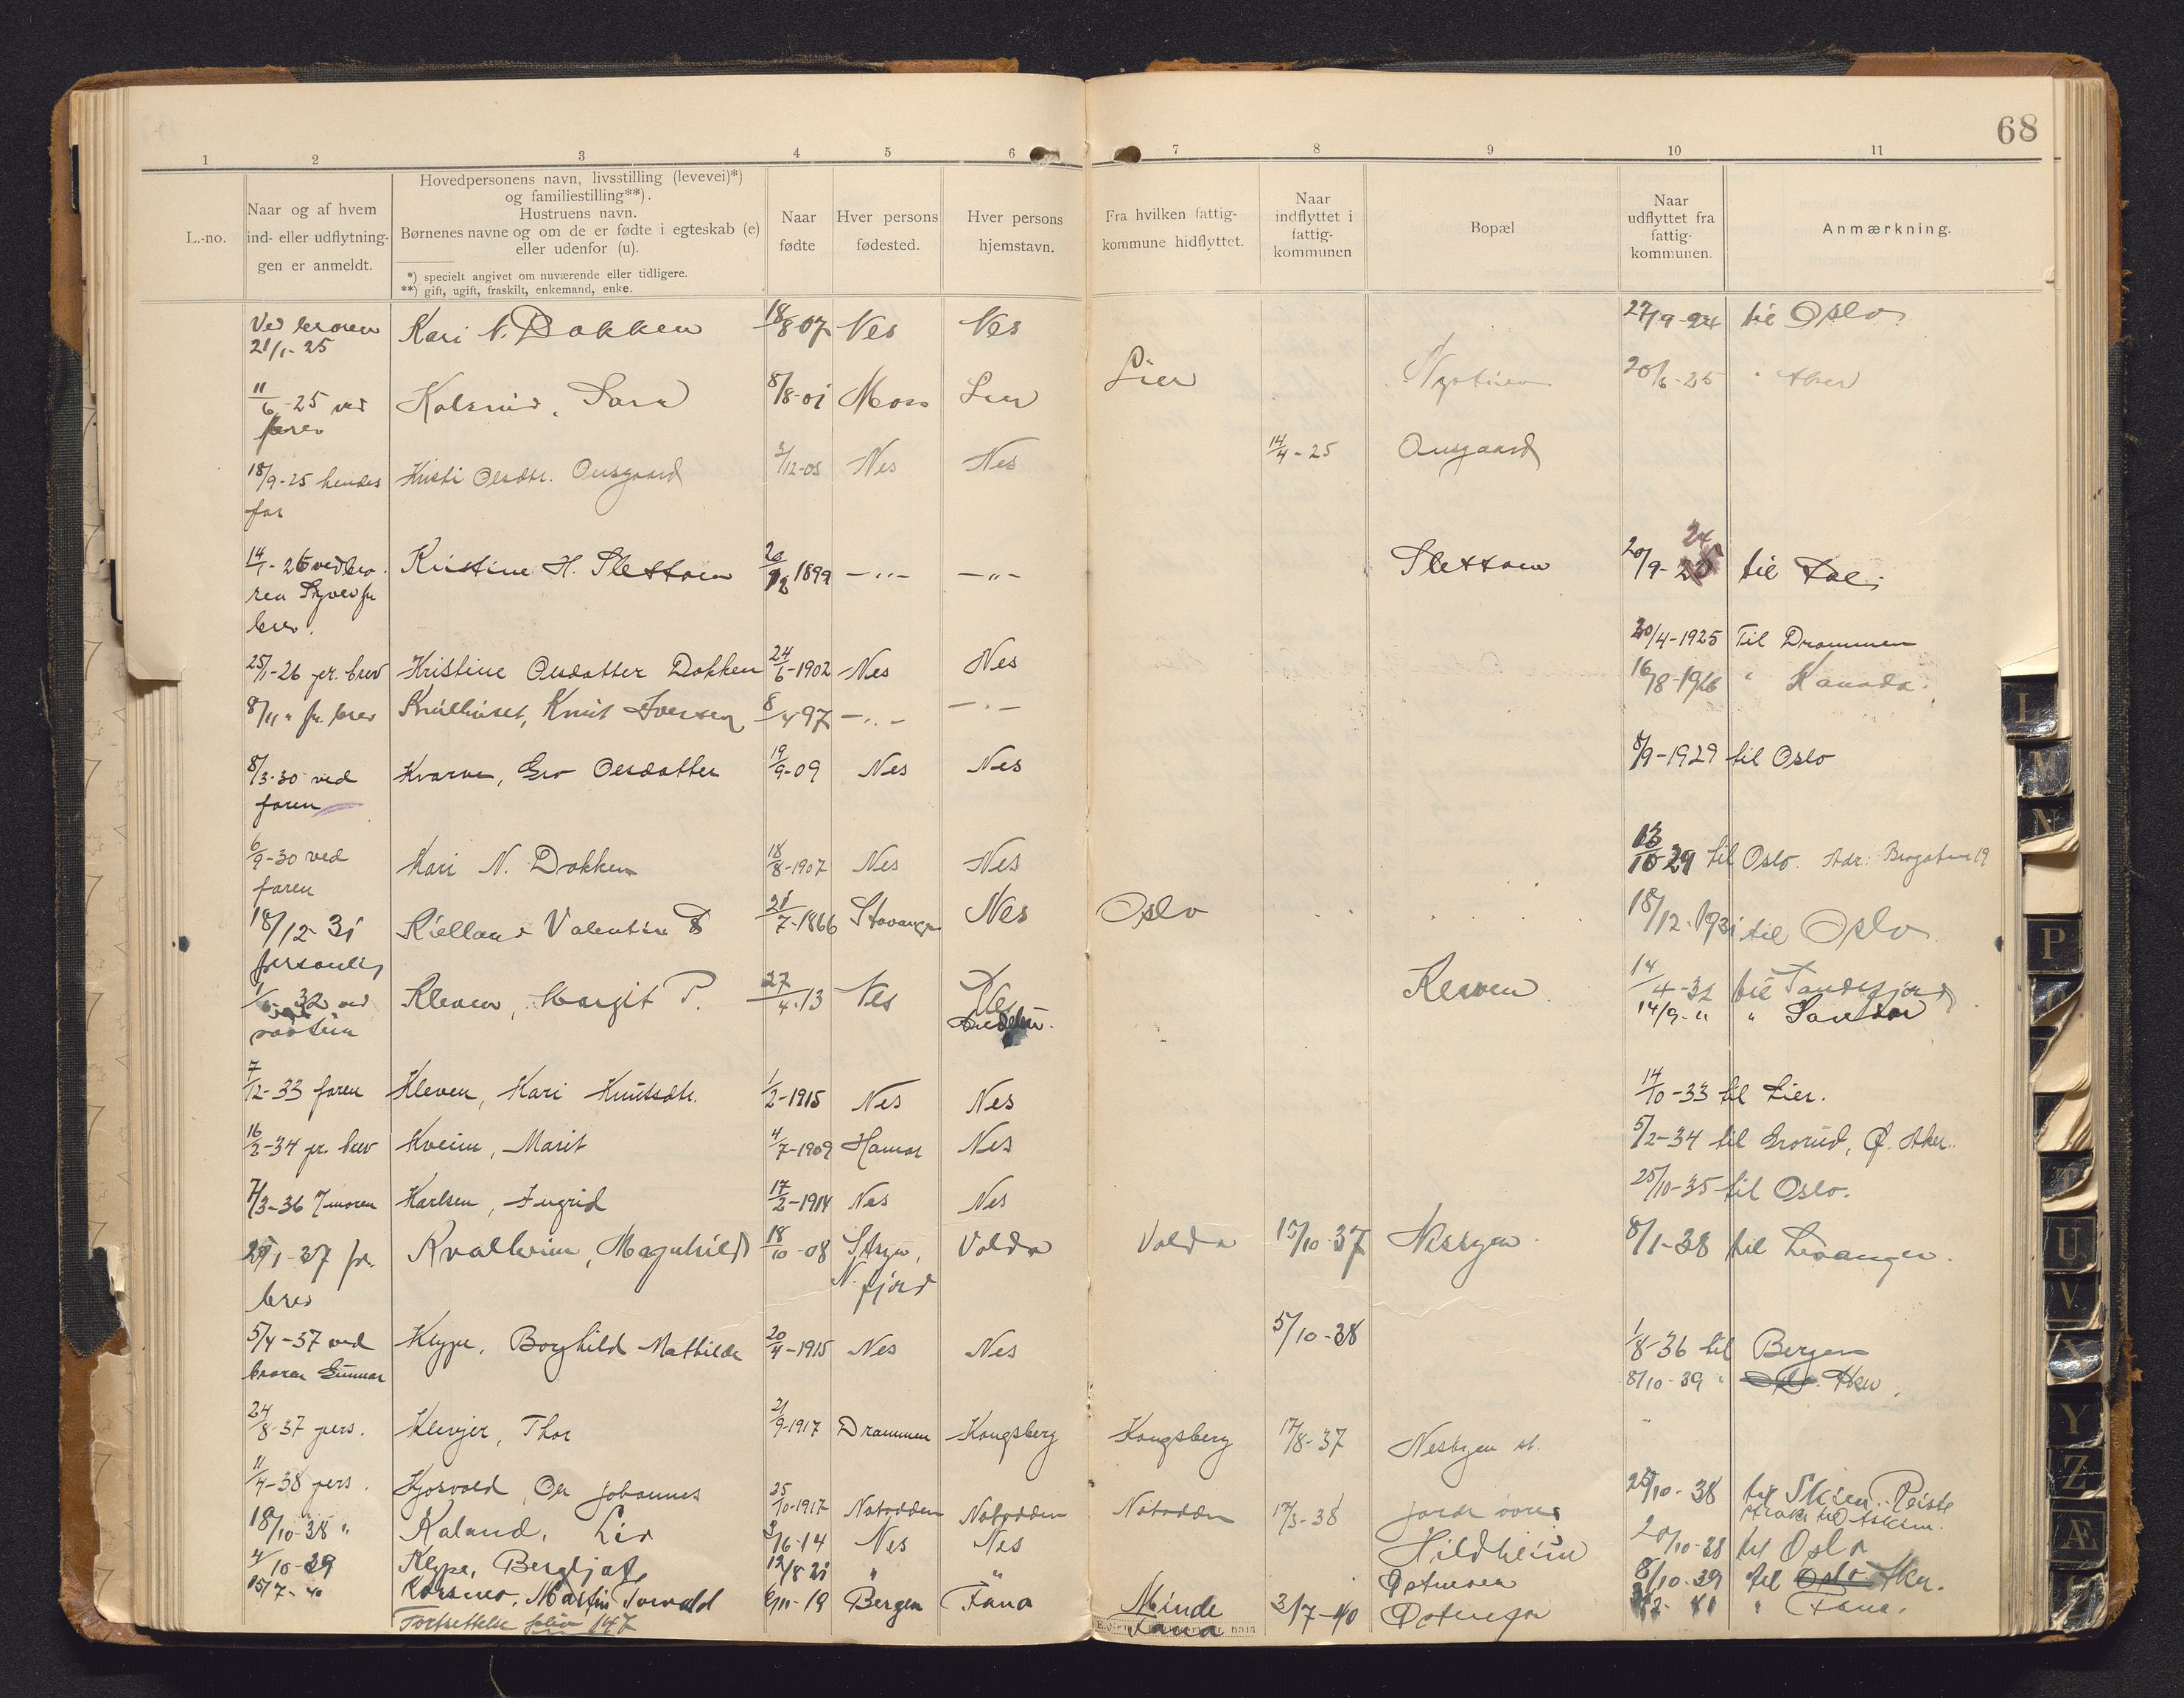 68
1 2 3 4 5 6 7 8 9 10 11
L.-no.
Naar og af hvem
ind- eller udflytnin-
gen er anmeldt.
Hovedpersonens navn, livsstilling (levevei)*)
og familiestilling**).
Hustruens navn.
Børnenes navne og om de er fødte i egteskab (e)
eller udenfor (u).
*) specielt angivet om nuværende eller tidligere.
**) gift, ugift, fraskilt, enkemand, enke.
Naar
fødte
Hver persons
fødested.
Hver persons
hjemstavn.
Fra hvilken fattig-
kommune hidflyttet.
Naar
indflyttet i
fattig-
kommunen
Bopæl
Naar
udflyttet fra
fattig-
kommunen.
Anmærkning.
Ved broren Kari N. Dokken 18/8-07 Nes Nes 27/9-24 til Oslo
21/1-25
11/6-25 ved Kolsrud, Sara 8/8-01 Moss Lier Lier 20/6-25 " Aker
brev
18/9-25 hendes Kristi Olsdtr. Onsgaard 2/12-05 Nes Nes 14/4-25 Onsgaard
far
14/1-26 ved bro- Kristine H. Slettoen 20/12 1899 -"- -"- Slettoen 20/9-25 24 til
ren pr
brev.
25/1-26 pr. brev Kristine Olsdatter Dokken 24/6-1902 Nes Nes 30/4-1925 Til Drammen
8/11 " pr. brev Knut Iversen 8/4 97 -"- -"- 16/8-1926 " Kanada.
8/3-30 ved Kvarve, Gro Olsdatter 19/9-09 Nes Nes 8/9-1929 til Oslo
faren
6/9-30 ved Kari N. Dokken 18/8-1907 Nes Nes 13/10-29 til Oslo. Adr:
faren
18/12-31 Kielland Valentin 21/7-1866 Stavanger Nes Oslo 18/12-1931 til Oslo
personlig
32 ved Kleven, Margit P. 27/4-13 Nes Nes Kleven 14/4-32 til Sandefjord
14/9-" " Sandar
7/12-33 faren Kleven, Kari Knutsdtr. 1/2-1915 Nes Nes 14/10-33 til Lier.
16/2-34 pr. brev Kveim, Marit 4/7-1909 Hamar Nes 5/2-34 til Grorud, Ø. Aker.
7/3-36 moren Karlsen, Ingrid 17/2-1914 Nes Nes 25/10-35 til Oslo.
1-37 pr. Kvalheim, Magnhild 18/10-08 Stryn, Volda Volda 15/10-37 Nesbyen 8/1-38 til Levanger.
brev N. fjord
5/4-37 ved Klype, Borghild Mathilde 20/4-1915 Nes Nes 5/10-38 1/8-36 til Bergen
broren Gunnar 8/10-39 " Aker.
24/8-37 pers. Klunger, Thor 21/9-1917 Drammen Kongsberg Kongsberg 17/8-37 Nesbyen st.
11/4-38 pers. Kjosvold, Ole Johannes 25/10-1917 Notodden Notodden Notodden 17/3-38 Jorde øvre 25/10-38 til Skien. Reiste
straks til Askim.
18/10-38 " Kaland, Liv 2/6-14 Nes Nes Hildheim 20/10-38 til Oslo
4/10-39 Klype, Bergljot 12/8-21 " " Østensen 8/10-39 til Oslo Aker.
15/7-40 Korsmo, Martin Torvald 6/11-19 Bergen Fana Minde 3/7-40 " Fana.
Fana
Fortsettelse folio 147
L
M
N
P
U
V
X
Y
Z
Æ